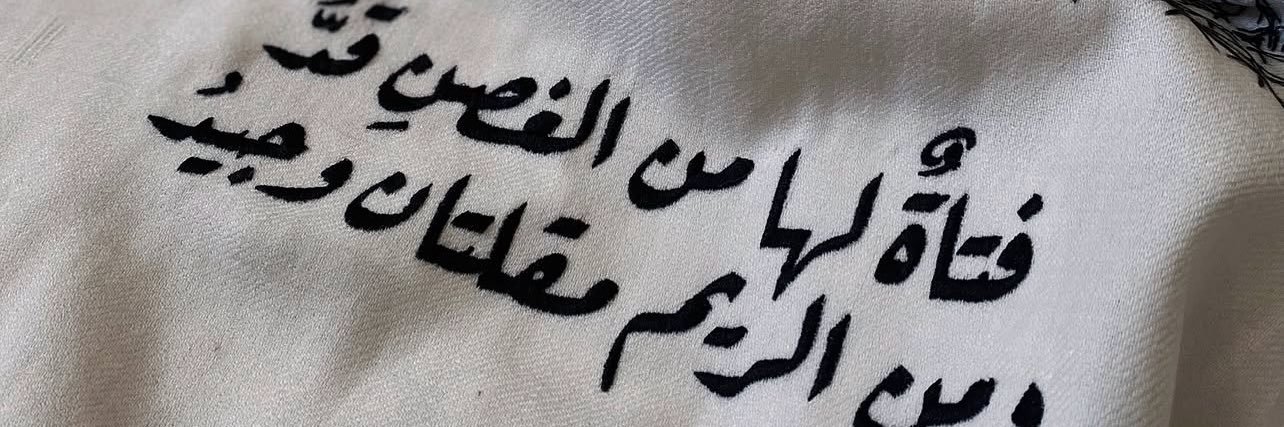 فتاةٌ لها من الغصنِ قدَّ
ومن الريم مقلتان وجيدُ